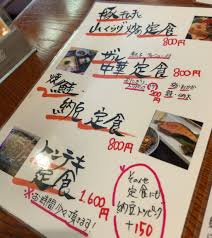 豚キムチ
山くらげ 炒め定食
800円
ザル
中華定食
800円
焼鮭
納豆定食
800円
トンテキ
定食
1.600円
※お時間少々頂きます!
その他
定食にも
納豆トッピング
+150